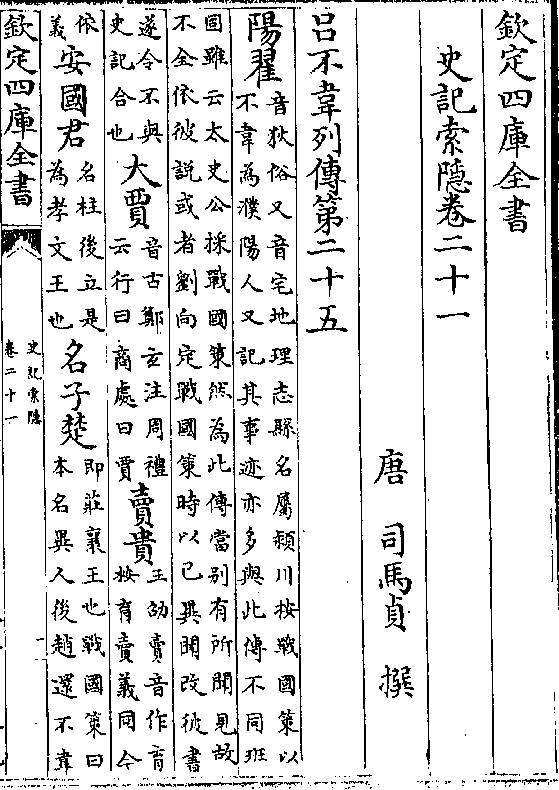 欽定四庫全書
史記索隱卷二十一
唐 司馬貞 撰
呂不韋列傳第二十五
陽翟音狄俗又音宅地理志縣名屬潁川按戰國策以
不韋為濮陽人又記其事迹亦多與此傳不同班
固雖云太史公採戰國策然為此傳當别有所聞見故
不全依彼說或者劉向定戰國策時以已異聞改彼書
遂令不與
史記合也大賈音古鄭玄注周禮
云行曰商處曰賈賣貴王劭賣音作育
按育賣義同今
依
義安國君名柱後立是
為孝文王也名子楚即莊襄王也戰國策曰
本名異人後趙還不韋
欽定四庫全書
史記索隱
卷二十一
一